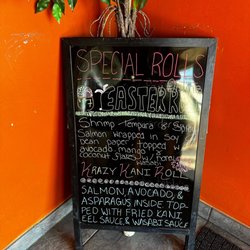 SPECIAL ROLLS
EASTER R
Shrimp Tempura &
Salmon wrapped in Soy
bean paper topped w
avocado mango
coconut flakes w/
KRAZY KANI ROLL
SALMON, AVOCADO, &
ASPARAGUS INSIDE TOP-
PED WITH FRIED KANI,
EEL SAUCE, & WASABI SAUCE